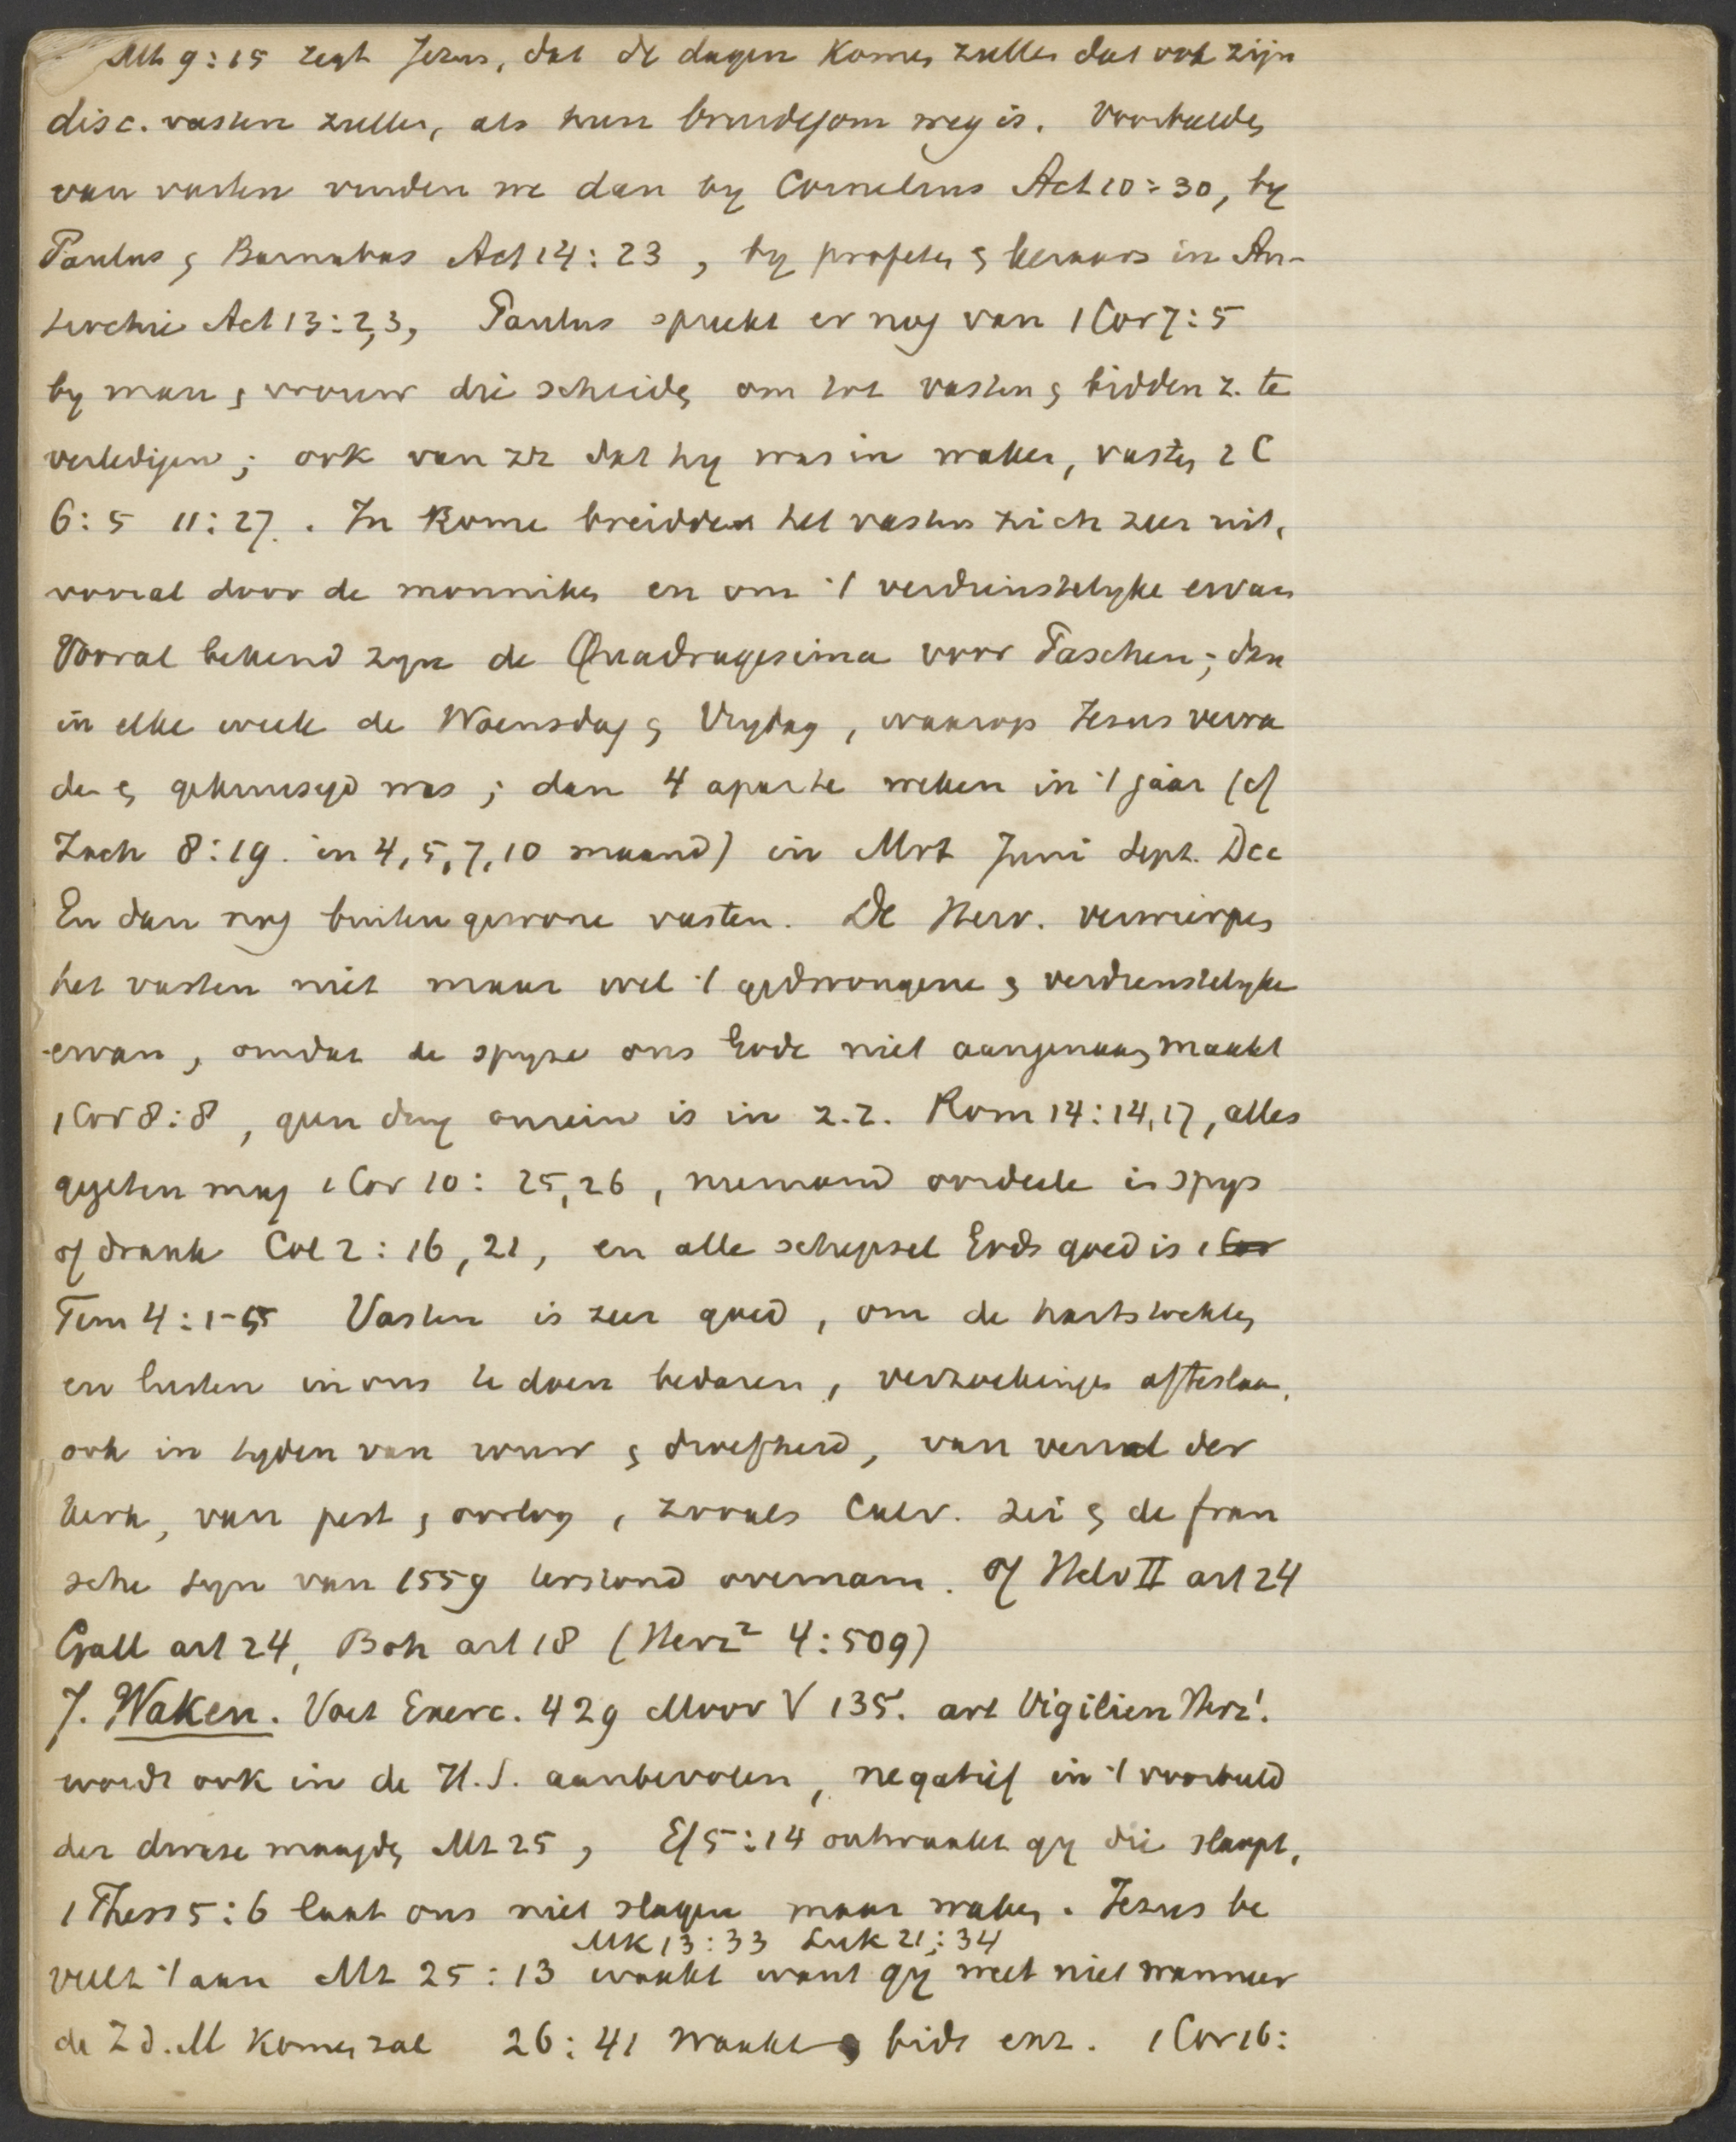 Mth 9:15 zegt Jezus, dat de dagen komen zullen dat ook zijn
disc. vasten zullen, als hun bruidegom weg is. Voorbeelden
van vasten vinden we dan by Cornelius Act 10:30, by
Paulus & Barnabas Act 14:23, by profeten & leraars in An-
tiochie Act 13:2,3, Paulus spreekt er nog van 1 Cor 7:5
by man & vrouw die scheiden om tot vasten & bidden z. te
verledigen; ook van zz dat hy was in waken, vasten 2 C
6:5 11:27. In Rome breidde het vasten zich zeer uit,
vooral door de monniken en om 't verdienstelyke ervan
Vooral bekend zyn de Quadragesima voor Paschen; dan
in elke week de Woensdag & Vrydag, waarop Jesus verra
den & gekruisigd was; dan 4 aparte weken in 't jaar (cf
Zach 8:19. in 4,5,7,10 maand) in Mrt Juni Sept. Dec
En dan nog buitengewone vasten. De Herv. verwierpen
het vasten niet maar wel 't gedwongene & verdienstelyke
ervan, omdat de spyze ons Gode niet aangenaam maakt
1 Cor 8:8, geen ding onrein is in z.z. Rom 14:14,17, alles
gegeten mag 1 Cor 10: 25,26, niemand oordeele in spys
of drank Col 2:16,21, en alle schepsel Gods goed is 1 Cor
Tim 4:1-5 Vasten is zeer goed, om de hartstochten
en lusten in ons te doen bedaren, verzoekingen afteslaan,
ook in tyden van rouw & droefheid, van verval der
kerk, van pest & oorlog, zooals Calv. zei & de fran
sche syn van 1559 terstond overnam. cf Helv II art 24
Gall art 24, Boh art 18 (Herz² 4:509)
7. Waken. Voet Exerc. 429 Moor V 135. art Vigilien Herz¹.
wordt ook in de H.S. aanbevolen, negatief in 't voorbeeld
der dwaze maagden Mt 25, Ef 5:14 ontwaakt gy die slaapt,
1 Thess 5:6 laat ons niet slapen maar waken. Jezus be
Mk 13:33 Luk 21:34
veelt 't aan Mt 25:13 waakt want gy weet niet wanneer
de Z d. M komen zal 26:41 Waakt & bidt enz. 1 Cor 16: